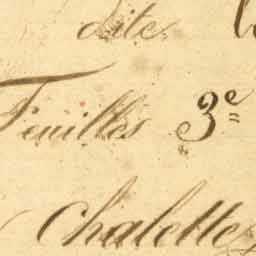 dite
Feuilles 3e
Chalette